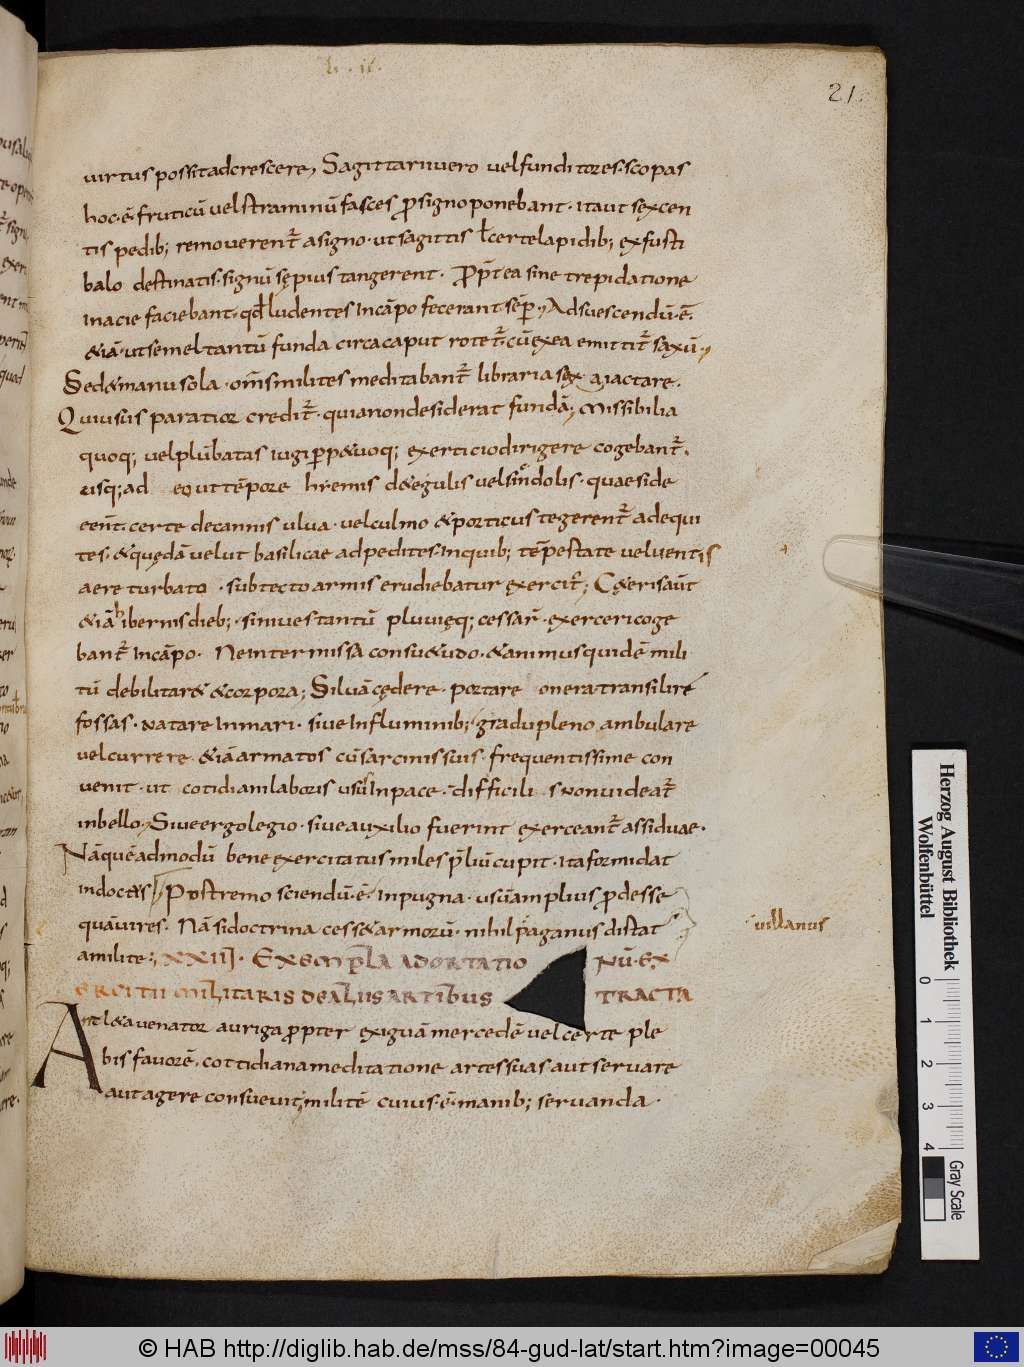 L · II ·
21.
uirtus possit adcrescere, Sagittarii uero uel funditores · scopas
hoc · ē fruticū uel straminū fasces ꝓ signo ponebant · ita ut sexcen
tis pedib; remouerent̄ a signo · ut sagittis ł certe lapidib; ex fusti
balo destinatis · signū sępius tangerent · Ꝓpt̄ea sine trepidatione
in acie faciebant · qđ ludentes in cāpo fecerant sēꝑ · Adsuescendū · ē ·
& iā · ut semel tantū funda circa caput rotet̄ · cū ex ea emittit̄ saxū ·
Sed & manu sola · om̄s milites meditabant̄ libraria sęx · a iactare ·
Qui usus paratior credit̄ · quia non desiderat fundā; Missibilia
quoq; uel plūbatas iugi ꝑp&uoq; exercicio dirigere cogebant̄ ·
usq; ad eo ut tēpore hiemis de tegulis uel sindolis · quae si de
eēnt · certe de cannis ulua · uel culmo & porticus tegerent̄ ad equi
tes · & quędā uelut basilicae ad pedites · In quib; tēpestate uel uentis
aere turbato · sub tecto armis erudiebatur exercit̄; C&eris aūt
& iā hibernis dieb; · si niues tantū pluuięq; cessar̄ · exerceri coge
bant̄ In cāpo · Ne intermissa consu&udo · & animus quidē mili
tū debilitar& & corpora; Siluā cędere · portare onera transilire
fossas · natare In mari · siue In fluminib; gradu pleno ambulare
uel currere & iā armatos cū sarcinis suis · frequentissime con
uenit · ut cotidiani laboris usu In pace · difficilis non uideat̄
in bello · Siue ergo legio · siue auxilio fuerint exerceant̄ assiduae ·
Nā quēadmodū bene exercitatus miles p̄liū cupit · ita formidat
indoctus Postremo sciendū · ē · In pugna · usū amplius ꝓdesse
quā uires · Nā si doctrina cess& armorū · nihil paganus distat
uillanus
a milite; XXIII · Exempla adortatio nū · ex
ercitii militaris de aliis artibus tracta
Athl&a uenator auriga ꝓpter exiguā mercedē uel certe ple
bis fauorē · cottidiana meditatione artes suas aut seruare
aut agere consueuit; militē cuius · ē · manib; seruanda ·
Herzog August Bibliothek
Wolfenbüttel
0 1 2 3 4
Gray Scale
© HAB http://diglib.hab.de/mss/84-gud-lat/start.htm?image=00045